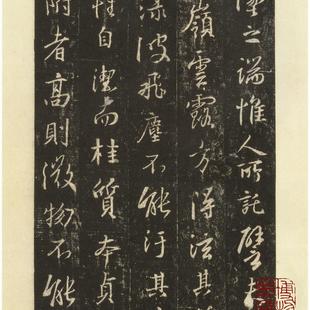 墜之端惟人所託譬
嶺雲露方得泫其
淥波飛塵不能汙其
性自潔而桂質本貞
附者高則微物不能